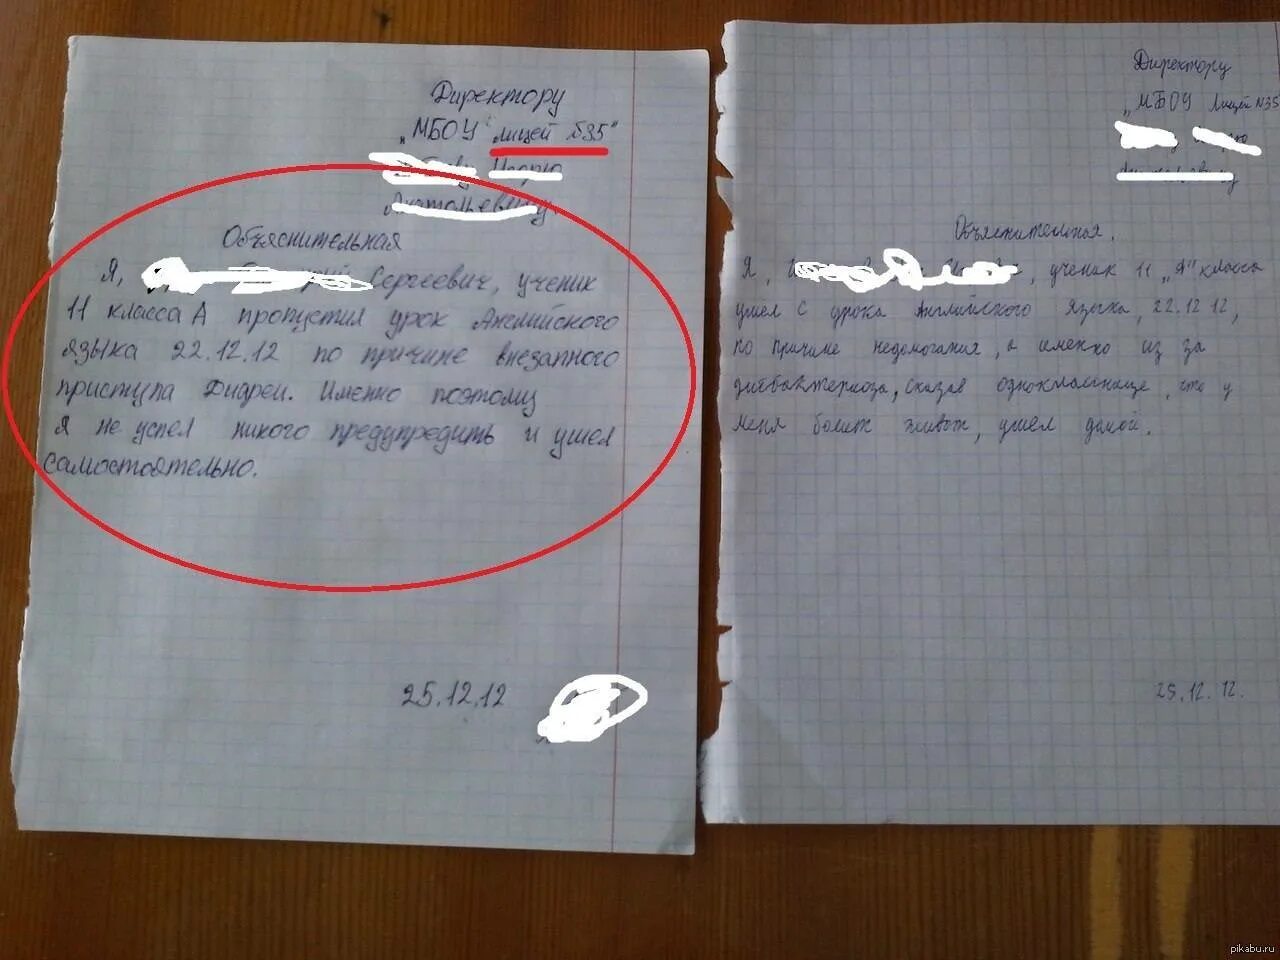 Директору
„МБОУ лицей №35"
Игорю
Анатольевичу
Объяснительная
Я, Сергеевич, ученик
11 класса А пропустил урок Английского
языка 22.12.12 по причине внезапного
приступа Диареи. Именно поэтому
я не успел никого предупредить и ушел
самостоятельно.
25.12.12
Директору
„МБОУ Лицей №35
Объяснительная.
Я, ученик 11 „А" класса
ушел с урока Английского языка, 22.12 12,
по причине недомогания, а именно из за
дисбактериоза, сказав однокласснице, что у
меня болит живот, ушёл домой.
25.12.12.
pikabu.ru